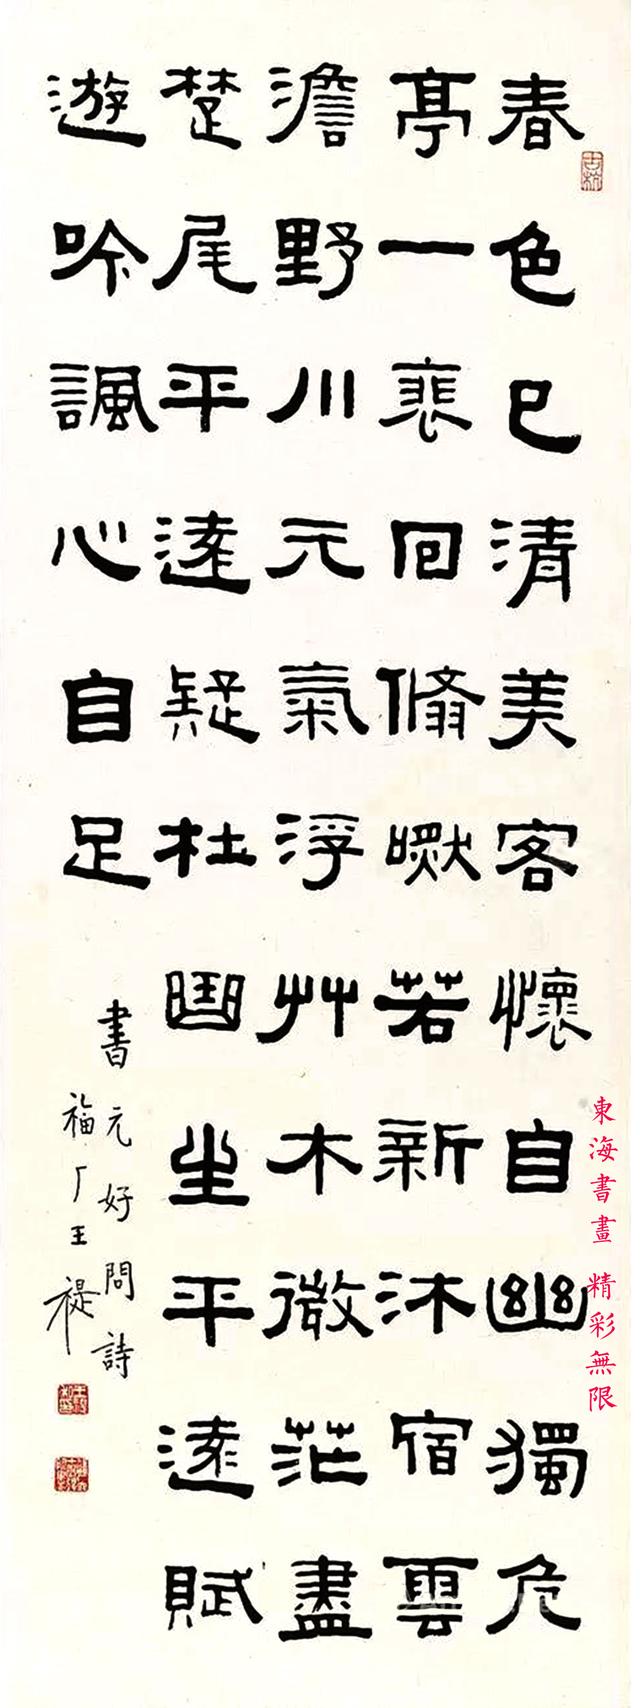 春色已清美客懷自幽獨危
亭一裵回翛然若新沐宿雲
澹野川元氣浮艸木微茫盡
楚尾平遠疑杜曲生平遠賦
遊吟諷心自足
書元好問詩
福厂王禔
東海書畫 精彩無限